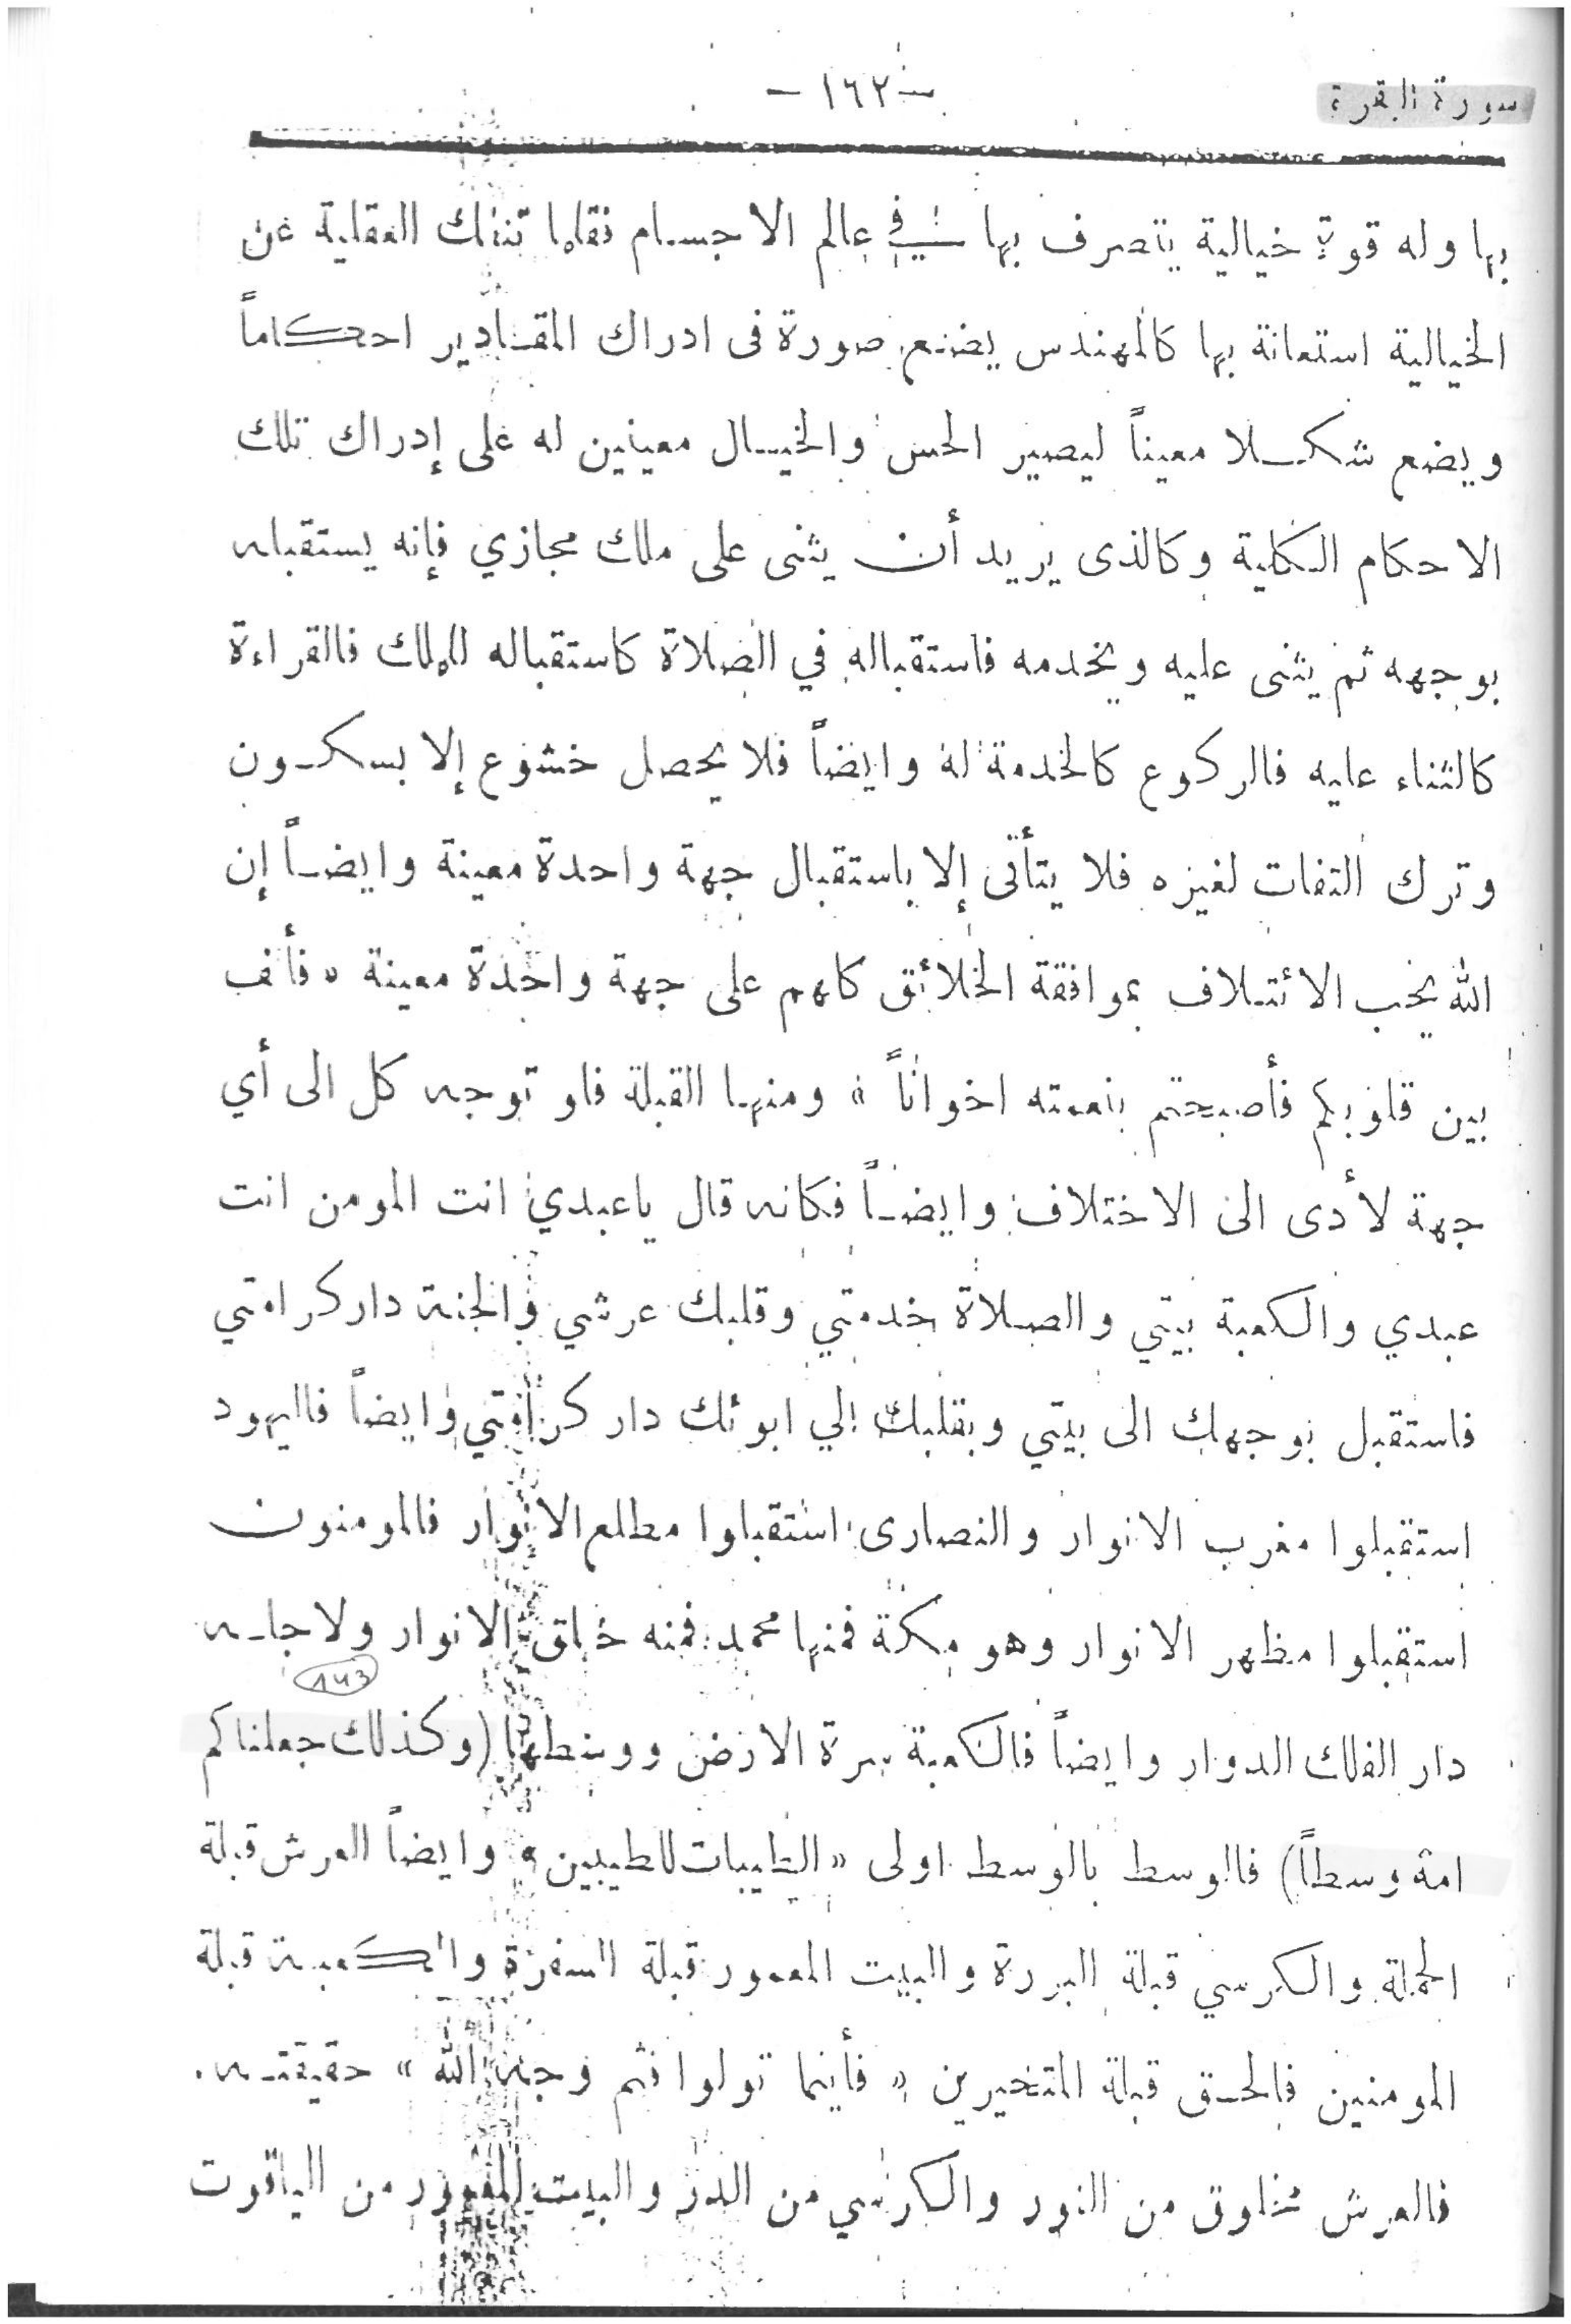 سورة البقرة
- ١٦٢ -
بها وله قوة خيالية يتصرف بها في عالم الاجسام فقلما تنفك العقلية عن
الخيالية استعانة بها كالمهندس يضع صورة فى ادراك المقادير احكاماً
ويضع شكلا معيناً ليصير الحس والخيال معينين له على إدراك تلك
الاحكام الكلية وكالذى يريد أن يثنى على ملك مجازي فإنه يستقبله
بوجهه ثم يثنى عليه ويخدمه فاستقباله في الصلاة كاستقباله للملك فالقراءة
كالثناء عليه فالركوع كالخدمة له وايضاً فلا يحصل خشوع إلا بسكون
وترك التفات لغيره فلا يتأتى إلا باستقبال جهة واحدة معينة وايضاً إن
الله يحب الائتلاف بموافقة الخلائق كلهم على جهة واحدة معينة « فألف
بين قلوبكم فأصبحتم بنعمته اخواناً » ومنها القبلة فلو توجه كل الى أي
جهة لأدى الى الاختلاف وايضاً فكانه قال ياعبدي انت المومن انت
عبدي والكعبة بيتي والصلاة خدمتي وقلبك عرشي والجنة دار كرامتي
فاستقبل بوجهك الى بيتي وبقلبك إلي ابوئك دار كرامتي وايضاً فاليهود
استقبلوا مغرب الانوار والنصارى استقبلوا مطلع الانوار فالمومنون
استقبلوا مظهر الانوار وهو مكة فمنها محمد فمنه خلق الانوار ولاجله
143
دار الفلك الدوار وايضاً فالكعبة سرة الارض ووسطها (وكذلك جعلناكم
امة وسطاً) فالوسط بالوسط اولى « الطيبات للطيبين » وايضاً العرش قبلة
الحملة والكرسي قبلة البررة والبيت المعمور قبلة السفرة والكعبة قبلة
المومنين فالحق قبلة المتحيرين « فأينما تولوا فثم وجه الله » حقيقته.
فالعرش مخلوق من النور والكرسي من الدر والبيت المعمور من الياقوت